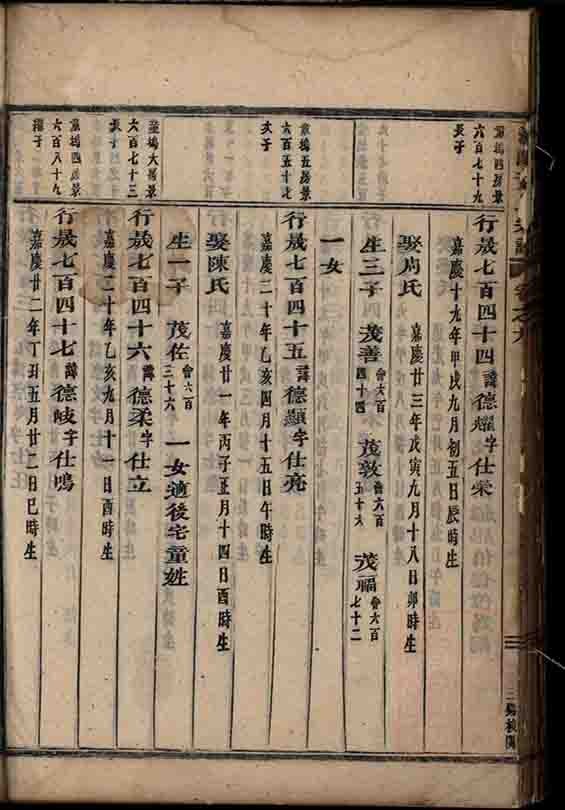 四房景
六百七十九
長子
行晟七百四十四諱德燿字仕榮
嘉慶十九年甲戌九月初五日辰時生
娶周氏 嘉慶廿三年戊寅九月十八日卯時生
生三子 茂善會六百四十四 茂敦會六百五十六 茂福會六百七十二
一女
五房景
六百五十七
次子
行晟七百四十五諱德顯字仕亮
嘉慶二十年乙亥四月十五日午時生
娶陳氏 嘉慶廿一年丙子五月十四日酉時生
生一子 茂佐會六百三十六 一女適後宅童姓
大房景
六百七十三
長子
行晟七百四十六諱德柔字仕立
嘉慶二十年乙亥九月十一日酉時生
四房景
六百八十九
行晟七百四十七諱德岐字仕鳴
嘉慶廿二年丁丑五月廿二日巳時生
卷之九